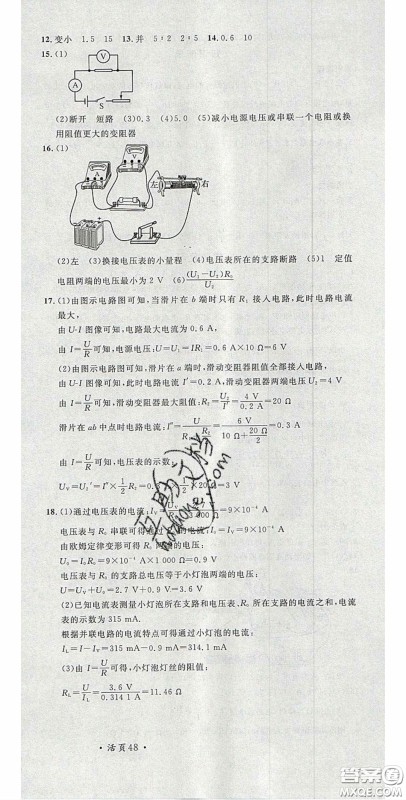 12. 变小　1.5　15　13. 并　5∶2　2∶5　14. 0.6　10
15. (1)
V
A
S
(2)断开　短路　(3)0.3　(4)5.0　(5)减小电源电压或串联一个电阻或换
用阻值更大的变阻器
16. (1)
左
右
(2)左　(3)换接电压表的小量程　(4)电压表所在的支路断路　(5)1　定值
电阻两端的电压最小为 2 V　(6)(U₁－U₂)R₀/U₂
17. (1)由图示电路图可知,当滑片在 b 端时只有 R₁ 接入电路,此时电路电流
最大,
由 U-I 图像可知,电路最大电流为 0.6 A,
由 I=U/R可知,电源电压:U=U₁=IR₁=0.6 A×10 Ω=6 V
(2)由图示电路图可知,滑片在 a 端时,滑动变阻器阻值全部接入电路,
由 U-I 图像可知,此时电路电流 I′=0.2 A,滑动变阻器两端电压 U₂=4 V
由 I=U/R可知,滑动变阻器最大阻值:R₂=U₂/I′=4 V/0.2 A=20 Ω
滑片在 ab 中点时电路电流:I″=
=6 V/(10 Ω+20/2 Ω)=0.3 A
由 I=U/R可知,电压表的示数:
18. (1)通过电压表的电流:
=9×10⁻⁴ A
电压表与 R₀ 串联可得通过 R₀ 的电流:I₀=I_V=9×10⁻⁴ A
由欧姆定律变形可得 R₀ 的电压:
电压表与 R₀ 的支路总电压等于小灯泡两端电压:
U=U_V+U₀=2.7 V+0.9 V=3.6 V
(2)已知电流表测量小灯泡所在支路和电压表、R₀ 所在支路的电流之和,电流
表的示数为 315 mA.
根据并联电路的电流特点可得通过小灯泡的电流:
I_L=I－I_V=315 mA－0.9 mA=314.1 mA
(3)由 I=U/R可得,小灯泡灯丝的阻值:
R_L=U/I_L=3.6 V/0.3141 A≈11.46 Ω
· 活页 48 ·
答案圈